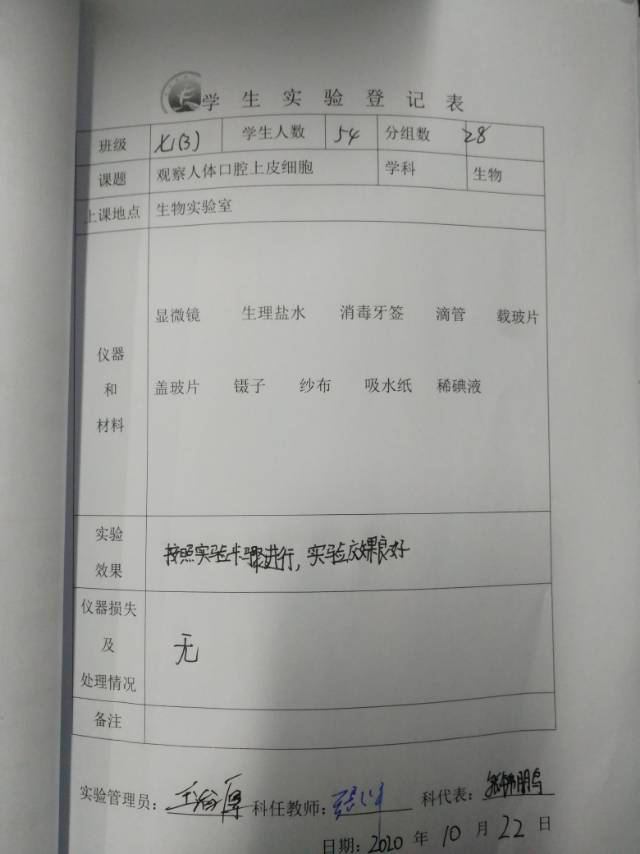 学生实验登记表
班级 七(3) 学生人数 54 分组数 28
课题 观察人体口腔上皮细胞 学科 生物
上课地点 生物实验室
显微镜 生理盐水 消毒牙签 滴管 载玻片
仪器
和
材料
盖玻片 镊子 纱布 吸水纸 稀碘液
实验
效果
按照实验步骤进行，实验效果良好
仪器损失
及
处理情况
无
备注
实验管理员： 科任教师： 科代表：
日期：2020 年 10 月 22 日